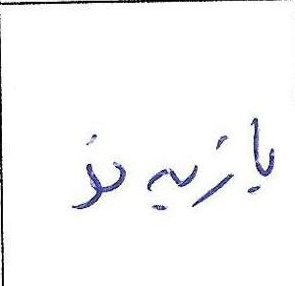 بازیه نو